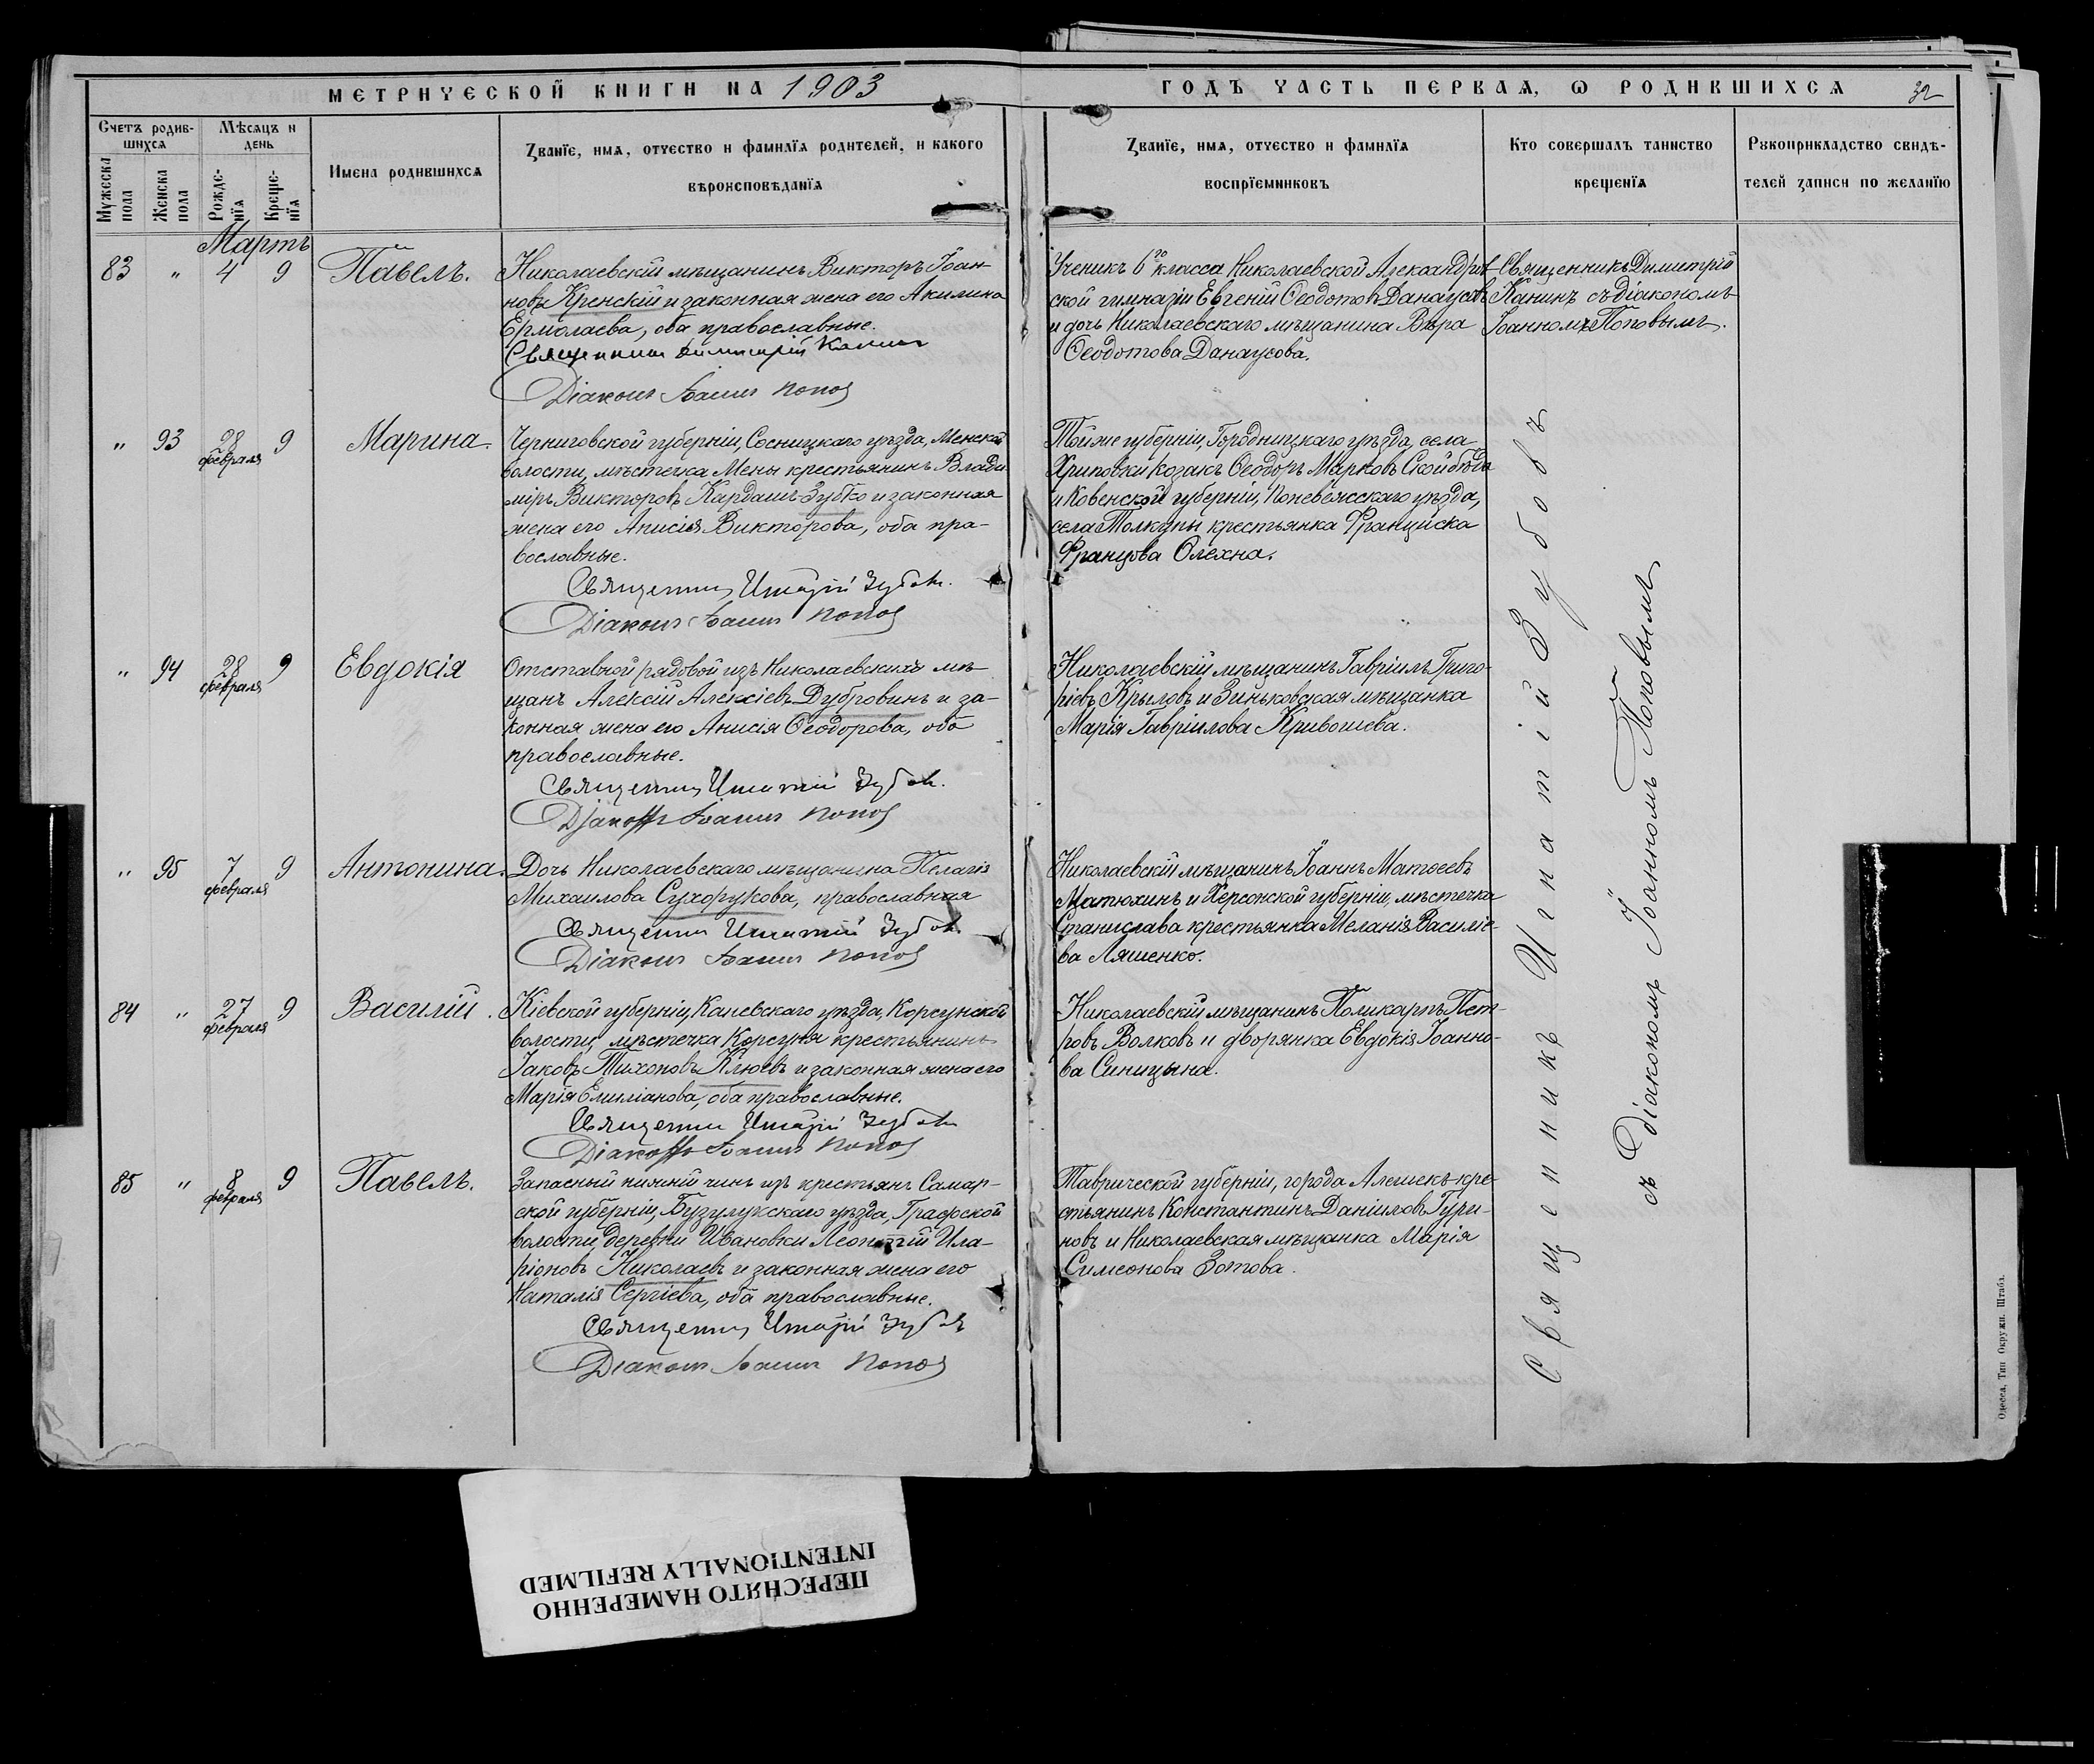 МЕТРИЧЕСКОЙ КНИГИ НА 1903
ГОДЪ ЧАСТЬ ПЕРВАЯ, Ѡ РОДИВШИХСЯ 32
Счетъ родив-
шихся
Мужеска
пола
Женска
пола
Мѣсяцъ и
день
Рожде-
нїя
Креще-
нїя
Имена родившихся
Званїе, имя, отчество и фамилїя родителей, и какого
вѣроисповѣданїя
Званїе, имя, отчество и фамилїя
воспрїемниковъ
Кто совершалъ таинство
крещенїя
Рукоприкладство свидѣ-
телей записи по желанїю
Мартъ
83 " 4 9 Павелъ.
Николаевскій мѣщанинъ Викторъ Іоан-
новъ Кренскій и законная жена его Акилина
Ермолаева, оба православные.
Священникъ Димитрій Канинъ
Діаконъ Іоаннъ Поповъ
Ученикъ 6го класса Николаевской Александров-
ской гимназіи Евгеній Ѳеодотовъ Данаусовъ
и дочь Николаевскаго мѣщанина Вѣра
Ѳеодотова Данаусова.
Священникъ Димитрій
Канинъ съ діакономъ
Іоанномъ Поповымъ.
" 93 28 февраля 9 Марина.
Черниговской губерніи, Сосницкаго уѣзда, Менской
волости, мѣстечка Мены крестьянинъ Влади
міръ Викторовъ Кардашъ-Зубко и законная
жена его Анисія Викторова, оба пра-
вославные.
Священникъ Игнатій Зубовъ.
Діаконъ Іоаннъ Поповъ
Той же губерніи, Городницкаго уѣзда, села
Хриповки козакъ Ѳеодоръ Марковъ Скойбѣда
и Ковенской губерніи, Поневежсскаго уѣзда,
села Толкуны крестьянка Франциска
Францова Олехна.
" 94 28 февраля 9 Евдокія
Отставной рядовой изъ Николаевскихъ мѣ-
щанъ Алексій Алексіевъ Дубровинъ и за-
конная жена его Анисія Ѳеодорова, оба
православные.
Священникъ Игнатій Зубовъ.
Діаконъ Іоаннъ Поповъ
Николаевскій мѣщанинъ Гавріилъ Григо-
ріевъ Крыловъ и Зиньковская мѣщанка
Марія Гавріилова Кривошева.
" 95 7 февраля 9 Антонина.
Дочь Николаевскаго мѣщанина Пелагія
Михаилова Сухорукова, православная
Священникъ Игнатій Зубовъ.
Діаконъ Іоаннъ Поповъ
Николаевскій мѣщанинъ Іоаннъ Матѳеевъ
Матюхинъ и Херсонской губерніи, мѣстечка
Станислава крестьянка Меланія Василіе-
ва Ляшенко.
84 " 27 февраля 9 Василій.
Кіевской губерніи, Каневскаго уѣзда, Корсунской
волости, мѣстечка Корсуня крестьянинъ
Іаковъ Тихоновъ Клюевъ и законная жена его
Марія Емиліанова, оба православные.
Священникъ Игнатій Зубовъ
Діаконъ Іоаннъ Поповъ
Николаевскій мѣщанинъ Поликарпъ Пет-
ровъ Волковъ и дворянка Евдокія Іоанно-
ва Синицына.
85 " 8 февраля 9 Павелъ.
Запасный нижній чинъ изъ крестьянъ Самар-
ской губерніи, Бузулукскаго уѣзда, Грачевской
волости, деревни Ивановки Леонтій Ила-
ріоновъ Николаевъ и законная жена его
Наталія Сергіева, оба православные.
Священникъ Игнатій Зубовъ
Діаконъ Іоаннъ Поповъ
Таврической губерніи, города Алешекъ кре-
стьянинъ Константинъ Даніиловъ Гури-
новъ и Николаевская мѣщанка Марія
Симеонова Зотова.
Священникъ Игнатій Зубовъ
съ діакономъ Іоанномъ Поповымъ
Одесса, Тип. Окружн. Штаба.
ПЕРЕСНЯТО НАМЕРЕННО
INTENTIONALLY REFILMED